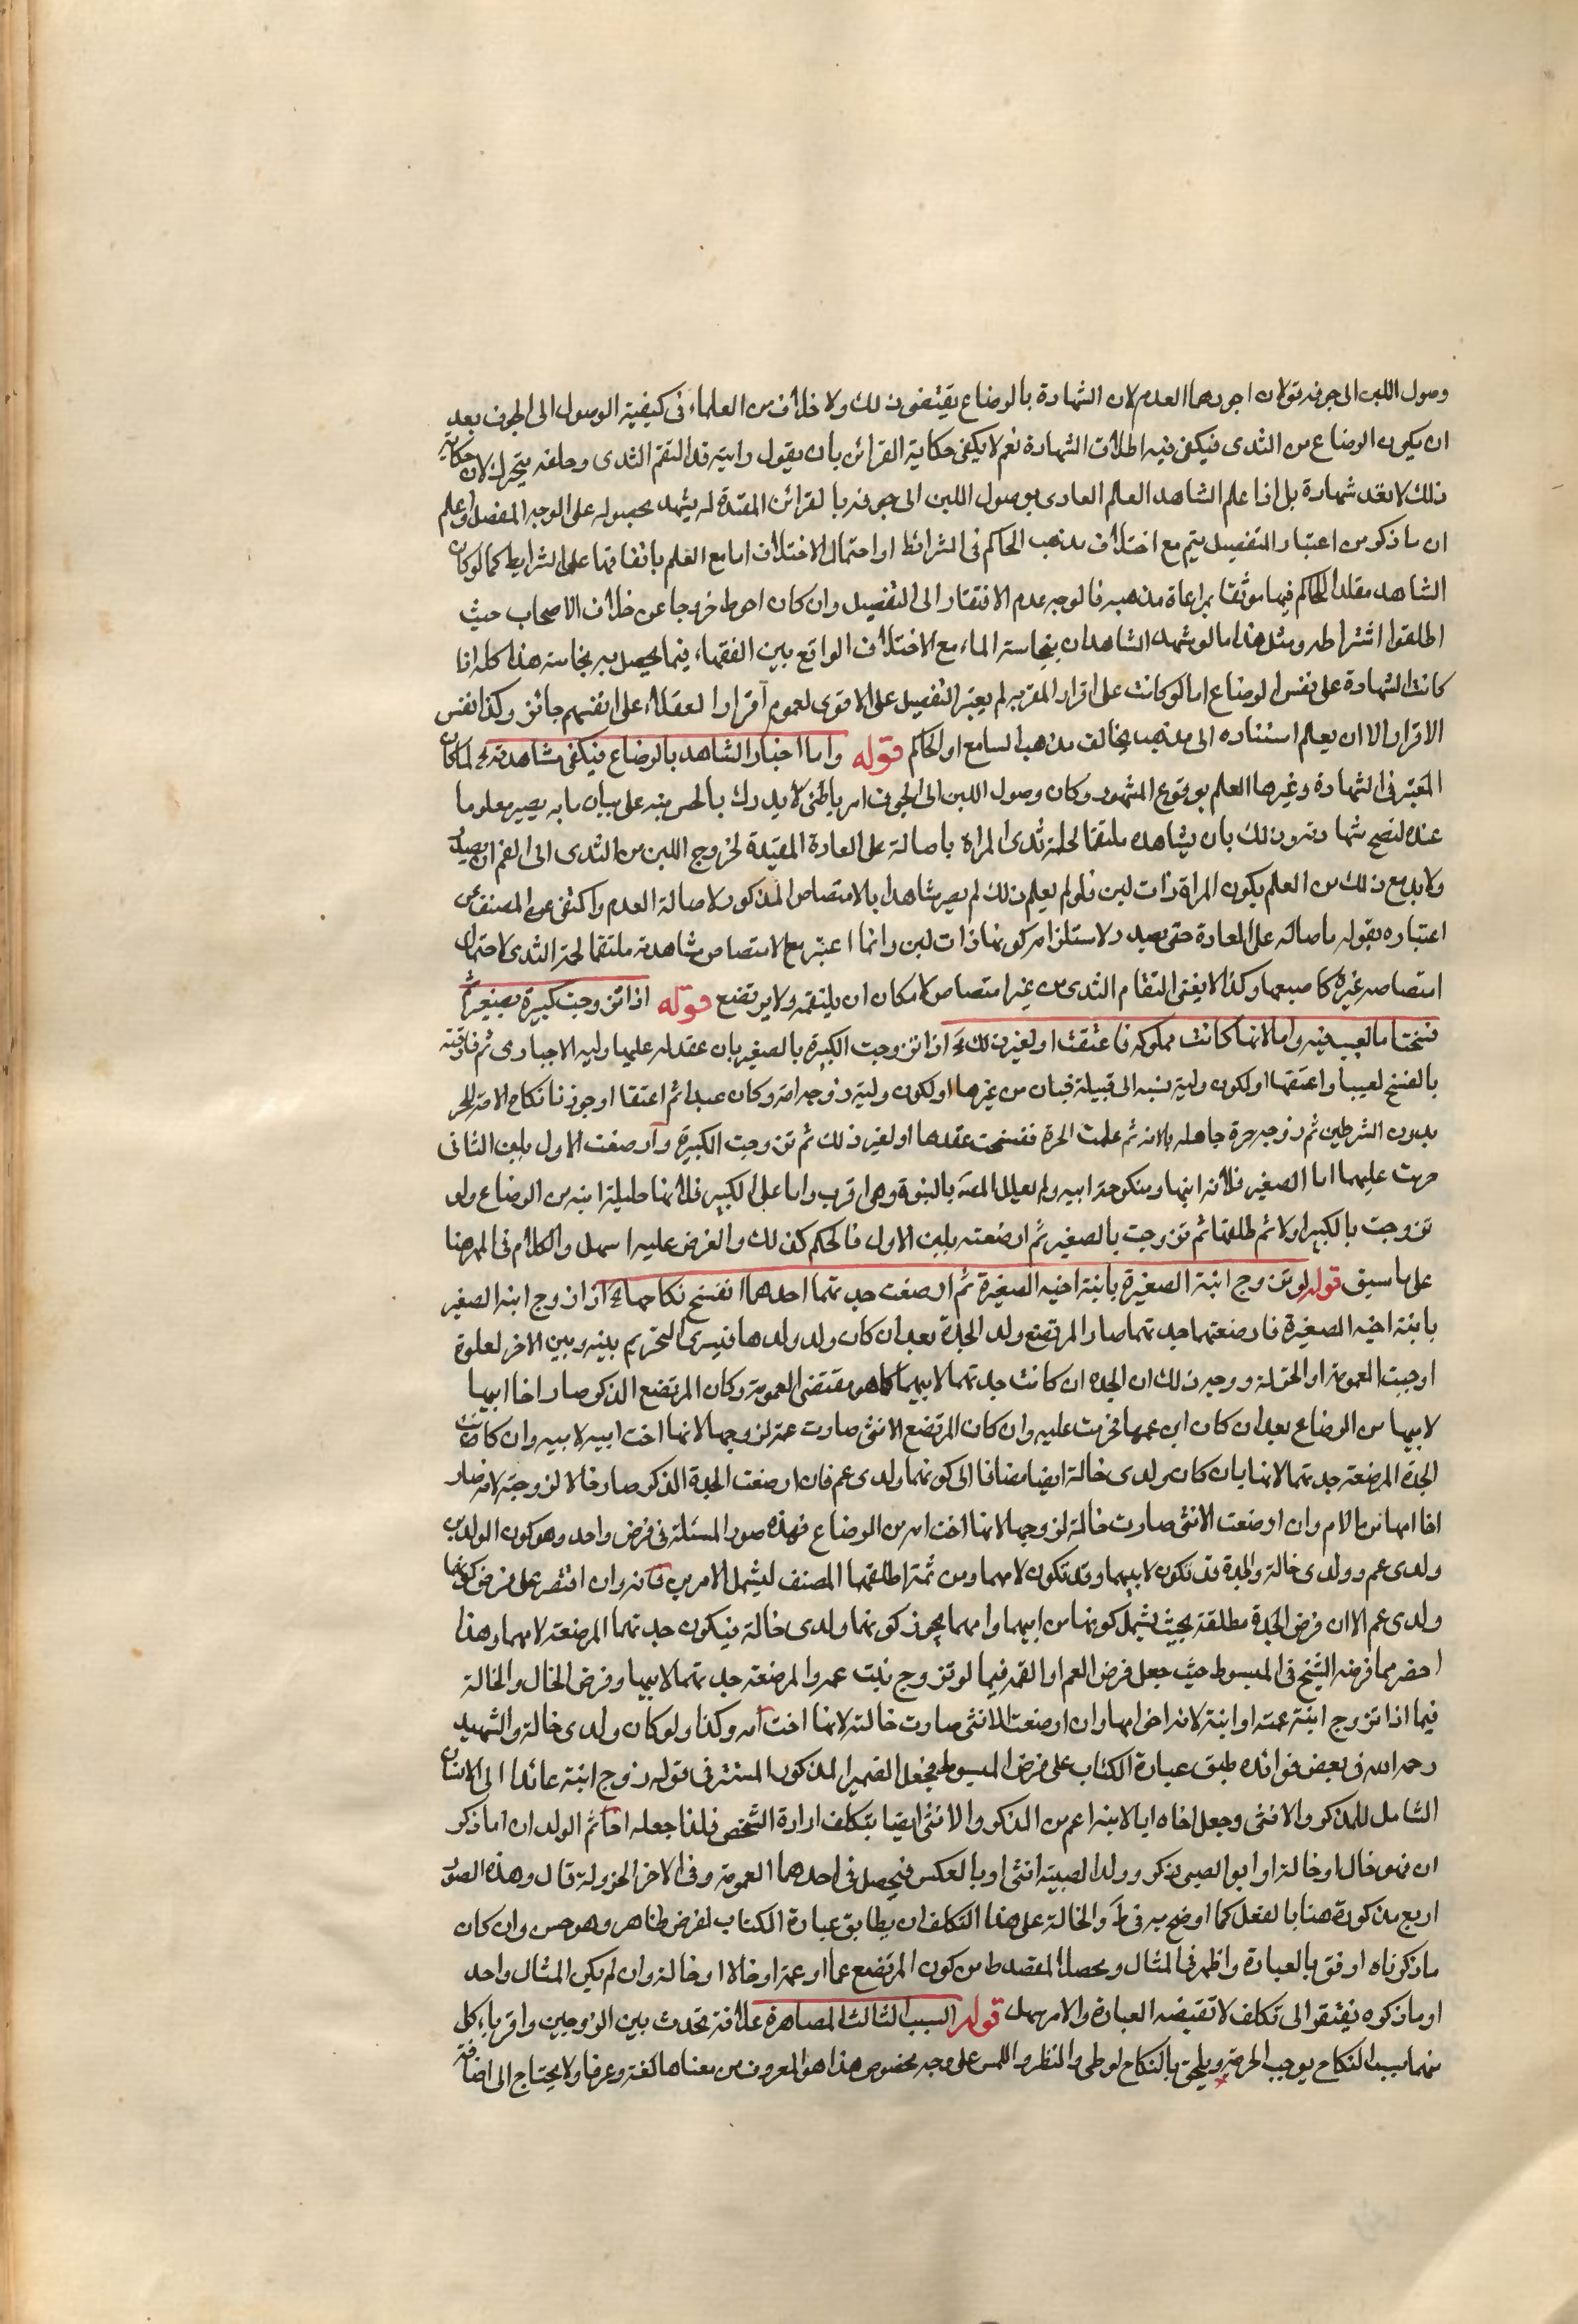 وصول اللبن الى جوفه قولان اجودهما العدم لان الشهادة بالرضاع يقتضى ذلك ولا خلاف من العلماء فى كيفية الوصول الى الجوف بعد
ان يكون الرضاع من الثدى فيكفى فيه اطلاق الشهادة نعم لا يكفى حكاية القرائن بان يقول رايته قد التقم الثدى وحلقه يتحرك لان حكاية
ذلك لا تعد شهادة بل اذا علم الشاهد العلم العادى بوصول اللبن الى جوفه بالقرائن المفيدة له يشهد بحصوله على الوجه المفصل واعلم
ان ما ذكر من اعتبار التفصيل يتم مع اختلاف مذهب الحاكم فى الشرائط او احتمال الاختلاف اما مع العلم باتفاقهما على الشرايط كما لو كان
الشاهد مقلدا للحاكم فيها موثقا بمراعاة مذهبه فالوجه عدم الافتقار الى التفصيل وان كان احوط خروجا عن خلاف الاصحاب حيث
اطلقوا اشتراطه ومثل هذا ما لو شهد الشاهدان بنجاسة الماء مع الاختلاف الواقع بين الفقهاء فيما يحصل به نجاسته هذا كله اذا
كانت الشهادة على نفس الرضاع اما لو كانت على اقرار المقر به لم يعتبر التفصيل على الاقوى لعموم اقرار العقلاء على انفسهم جائز وكذا نفس
الاقرار الا ان يعلم استناده الى مذهب يخالف مذهب السامع او الحاكم قوله واما اخبار الشاهد بالرضاع فيكفى مشاهدته الخ لما كان
المعتبر فى الشهادة وغيرها العلم بوقوع المشهود وكان وصول اللبن الى الجوف امر باطنى لا يدرك بالحس نبه على بيان ما به يصير معلوما
عنده لتصح شهادته وذلك بان يشاهده ملتقما لحلمة ثدى المراة باصالة على العادة المفيدة لخروج اللبن من الثدى الى الفم ان يصدر
ولا بد مع ذلك من العلم بكون المراة ذات لبن فلو لم يعلم ذلك لم يصر شاهدا بالامتصاص المذكور لاصالة العدم واكتفى المصنف عن
اعتباره بقوله ماصا له على العادة حتى يصدر لاستلزامه كونها ذات لبن وانما اعتبر مع الامتصاص مشاهدته ملتقما لحلمة الثدى لاحتمال
امتصاصه غيره كاصبعها وكذا لا يغنى التقام الثدى من غير امتصاص لامكان ان يلتقمه ولا يرتضع قوله اذا تزوجت كبيرة بصغير ثم
فسخت اما لعيب فيه واما لانها كانت مملوكة فاعتقت او لغير ذلك الخ اذا تزوجت الكبيرة بالصغير بان عقد له عليها وليه الاجبارى ثم فارقته
بالفسخ لعيب او اعتقها او لكون وليه نسبه الى قبيلة فبان من غيرها او لكون وليه زوجه امة وكان عبدا ثم اعتقا او جوزنا نكاح الامة للحر
بدون الشرطين ثم زوجه حرة جاهلة بالامة ثم علمت الحرة ففسخت عقدها او لغير ذلك ثم تزوجت الكبيرة وارضعت الاول بلبن الثانى
حرمت عليهما اما الصغير فلانه ابنها ومنكوحة ابيه ولم يعلل المصنف بالبنوة وهى اقرب واما على الكبير فلانها حليلة ابنه من الرضاع ولو
تزوجت بالكبير اولا ثم طلقها ثم تزوجت بالصغير ثم ارضعته بلبن الاول فالحكم كذلك والفرض عليه اسهل والكلام فى المهر هنا
على ما سبق قوله لو تزوج ابنة الصغيرة بابنة اخيه الصغيرة ثم ارضعت جدتهما احدهما انفسخ نكاحهما الخ اذا زوج ابنه الصغير
بابنة اخيه الصغيرة فارضعتهما جدتهما صار المرتضع ولد الجدة بعد ان كان ولد ولدها فيسرى التحريم بينه وبين الاخر لعلوة
اوجبت العمومة او الخؤلة ووجه ذلك ان الجدة ان كانت جدتهما لابيهما كما هو مقتضى العمومة وكان المرتضع الذكر صار اخا ابيها
لابيها من الرضاع بعد ان كان ابن عمها فحرمت عليه وان كان المرتضع الانثى صارت عمة لزوجها لانها اخت ابيه لابيه وان كانت
الجدة المرضعة جدتهما لامهما بان كان ولدى خالة ايضا مضافا الى كونهما ولدى عم فان ارضعت الجدة الذكر صار خالا لزوجته لانه صار
اخا امها من الام وان ارضعت الانثى صارت خالة لزوجها لانها اخت امه من الرضاع فهذه صور المسئلة فى فرض واحد وهو كون الولدين
ولدى عم وولدى خالة والجدة قد تكون لابيهما وقد تكون لامهما ومن ثمة اطلقها المصنف ليشمل الامرين فانه وان اقتصر على فرض كونهما
ولدى عم الا ان فرض الجدة مطلقة بحيث يشمل كونها من ابيهما وامهما يجوز كونهما ولدى خالة فيكون جدتهما المرضعة لامهما وهذا
احضر مما فرضه الشيخ فى المبسوط حيث جعل فرض العم او العمة فيما لو تزوج بنت عمه والمرضعة جدتهما لابيهما وفرض الخال والخالة
فيما اذا تزوج ابنة عمته او ابنة لانه اخى امها وان ارضعت الانثى صارت خالته لانها اخت امه وكذا ولو كان ولدى خالة والشهيد
رحمه الله فى بعض فوائده طبق عبارة الكتاب على فرض المبسوط فجعل الضمير المذكور المستتر فى قوله زوج ابنة عائدا الى الانسان
الشامل للمذكر والانثى وجعل اخاه ايا الابنة اعم من الذكر والانثى ايضا بتكلف ارادة الشخص فلذا جعله اخا ثم الولدان اما ذكر
ان فهو خال او خالة او ابو الصبى ذكر وولد الصبية انثى او بالعكس فيحصل فى احدهما العمومة وفى الاخر الخؤولة قال وهذه الصور
اربع مذكورة هنا بالفعل كما اوضح به فى ط والخالة على هذا التكلف ان يطابق عبارة الكتاب لفرض ظاهر وهو حسن وان كان
ما ذكرناه اوفق بالعبارة واظهر فى المثال ويحصل المقصد من كون المرتضع عما او عمة او خالا او خالة وان لم يكن المثال واحد
او ما ذكره يفتقر الى تكلف لا تقتضيه العبارة والامر سهل قوله السبب الثالث المصاهرة علاقة تحدث بين الزوجين واقرباء كل
منهما بسبب النكاح يوجب الحرمة ويلحق بالنكاح لوطى والنظر واللمس على وجه مخصوص هذا هو المعروف من معناها لغة وعرفا ولا يحتاج الى اضافة